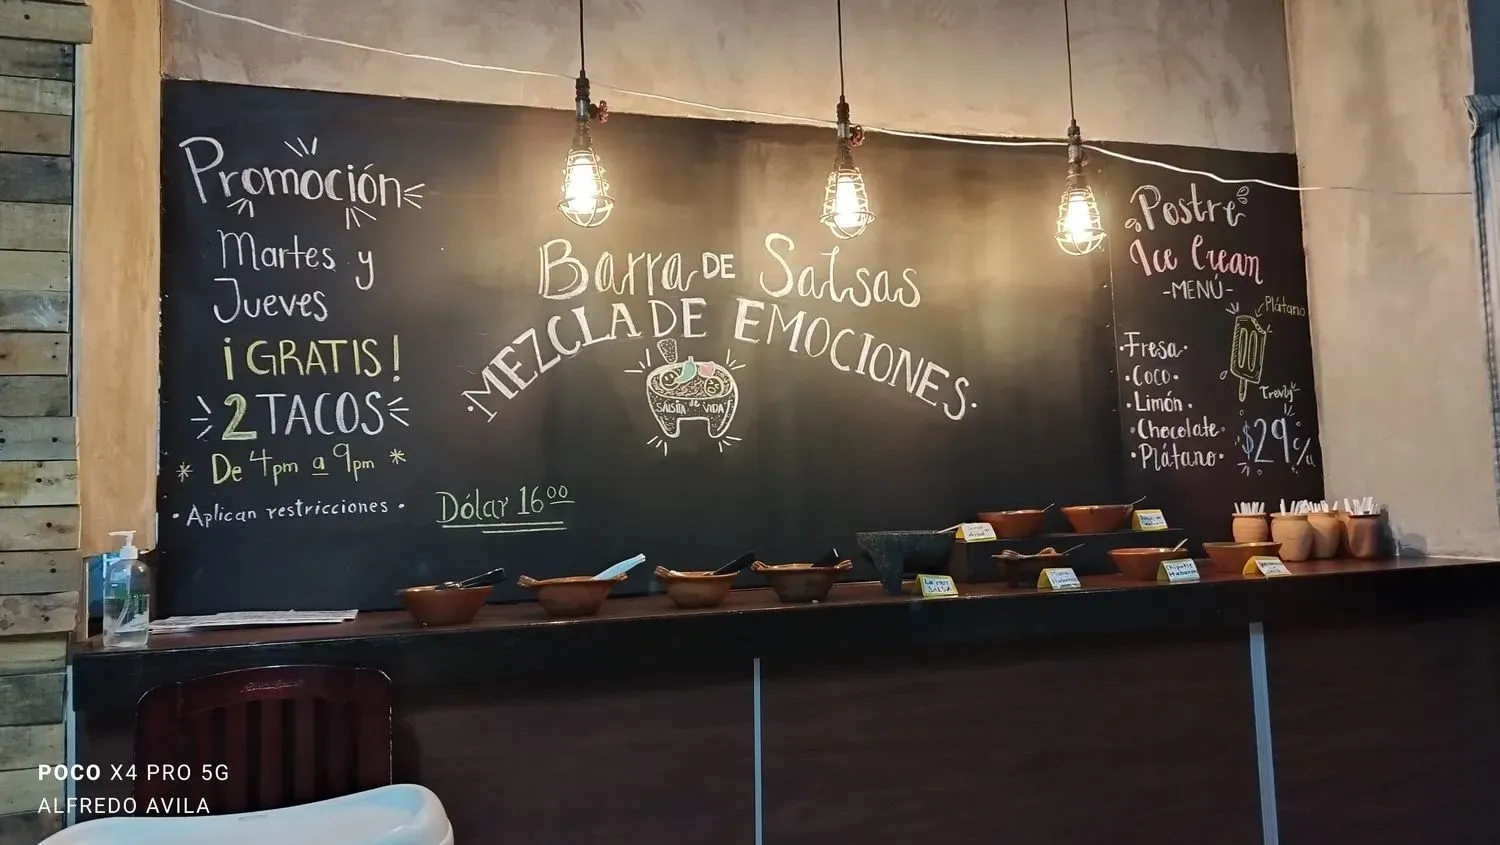 Promoción
Martes y
Jueves
¡GRATIS!
2 TACOS
* De 4pm a 9pm *
• Aplican restricciones •
Dólar 16⁰⁰
Barra DE Salsas
•MEZCLA DE EMOCIONES•
SALSITA de VIDA
Postre
Ice Cream
-MENÚ-
Plátano
•Fresa•
•Coco•
•Limón•
•Chocolate•
•Plátano•
$29 c/u
La muy
SALSA
Habanero
Chipotle
Habanero
POCO X4 PRO 5G
ALFREDO AVILA